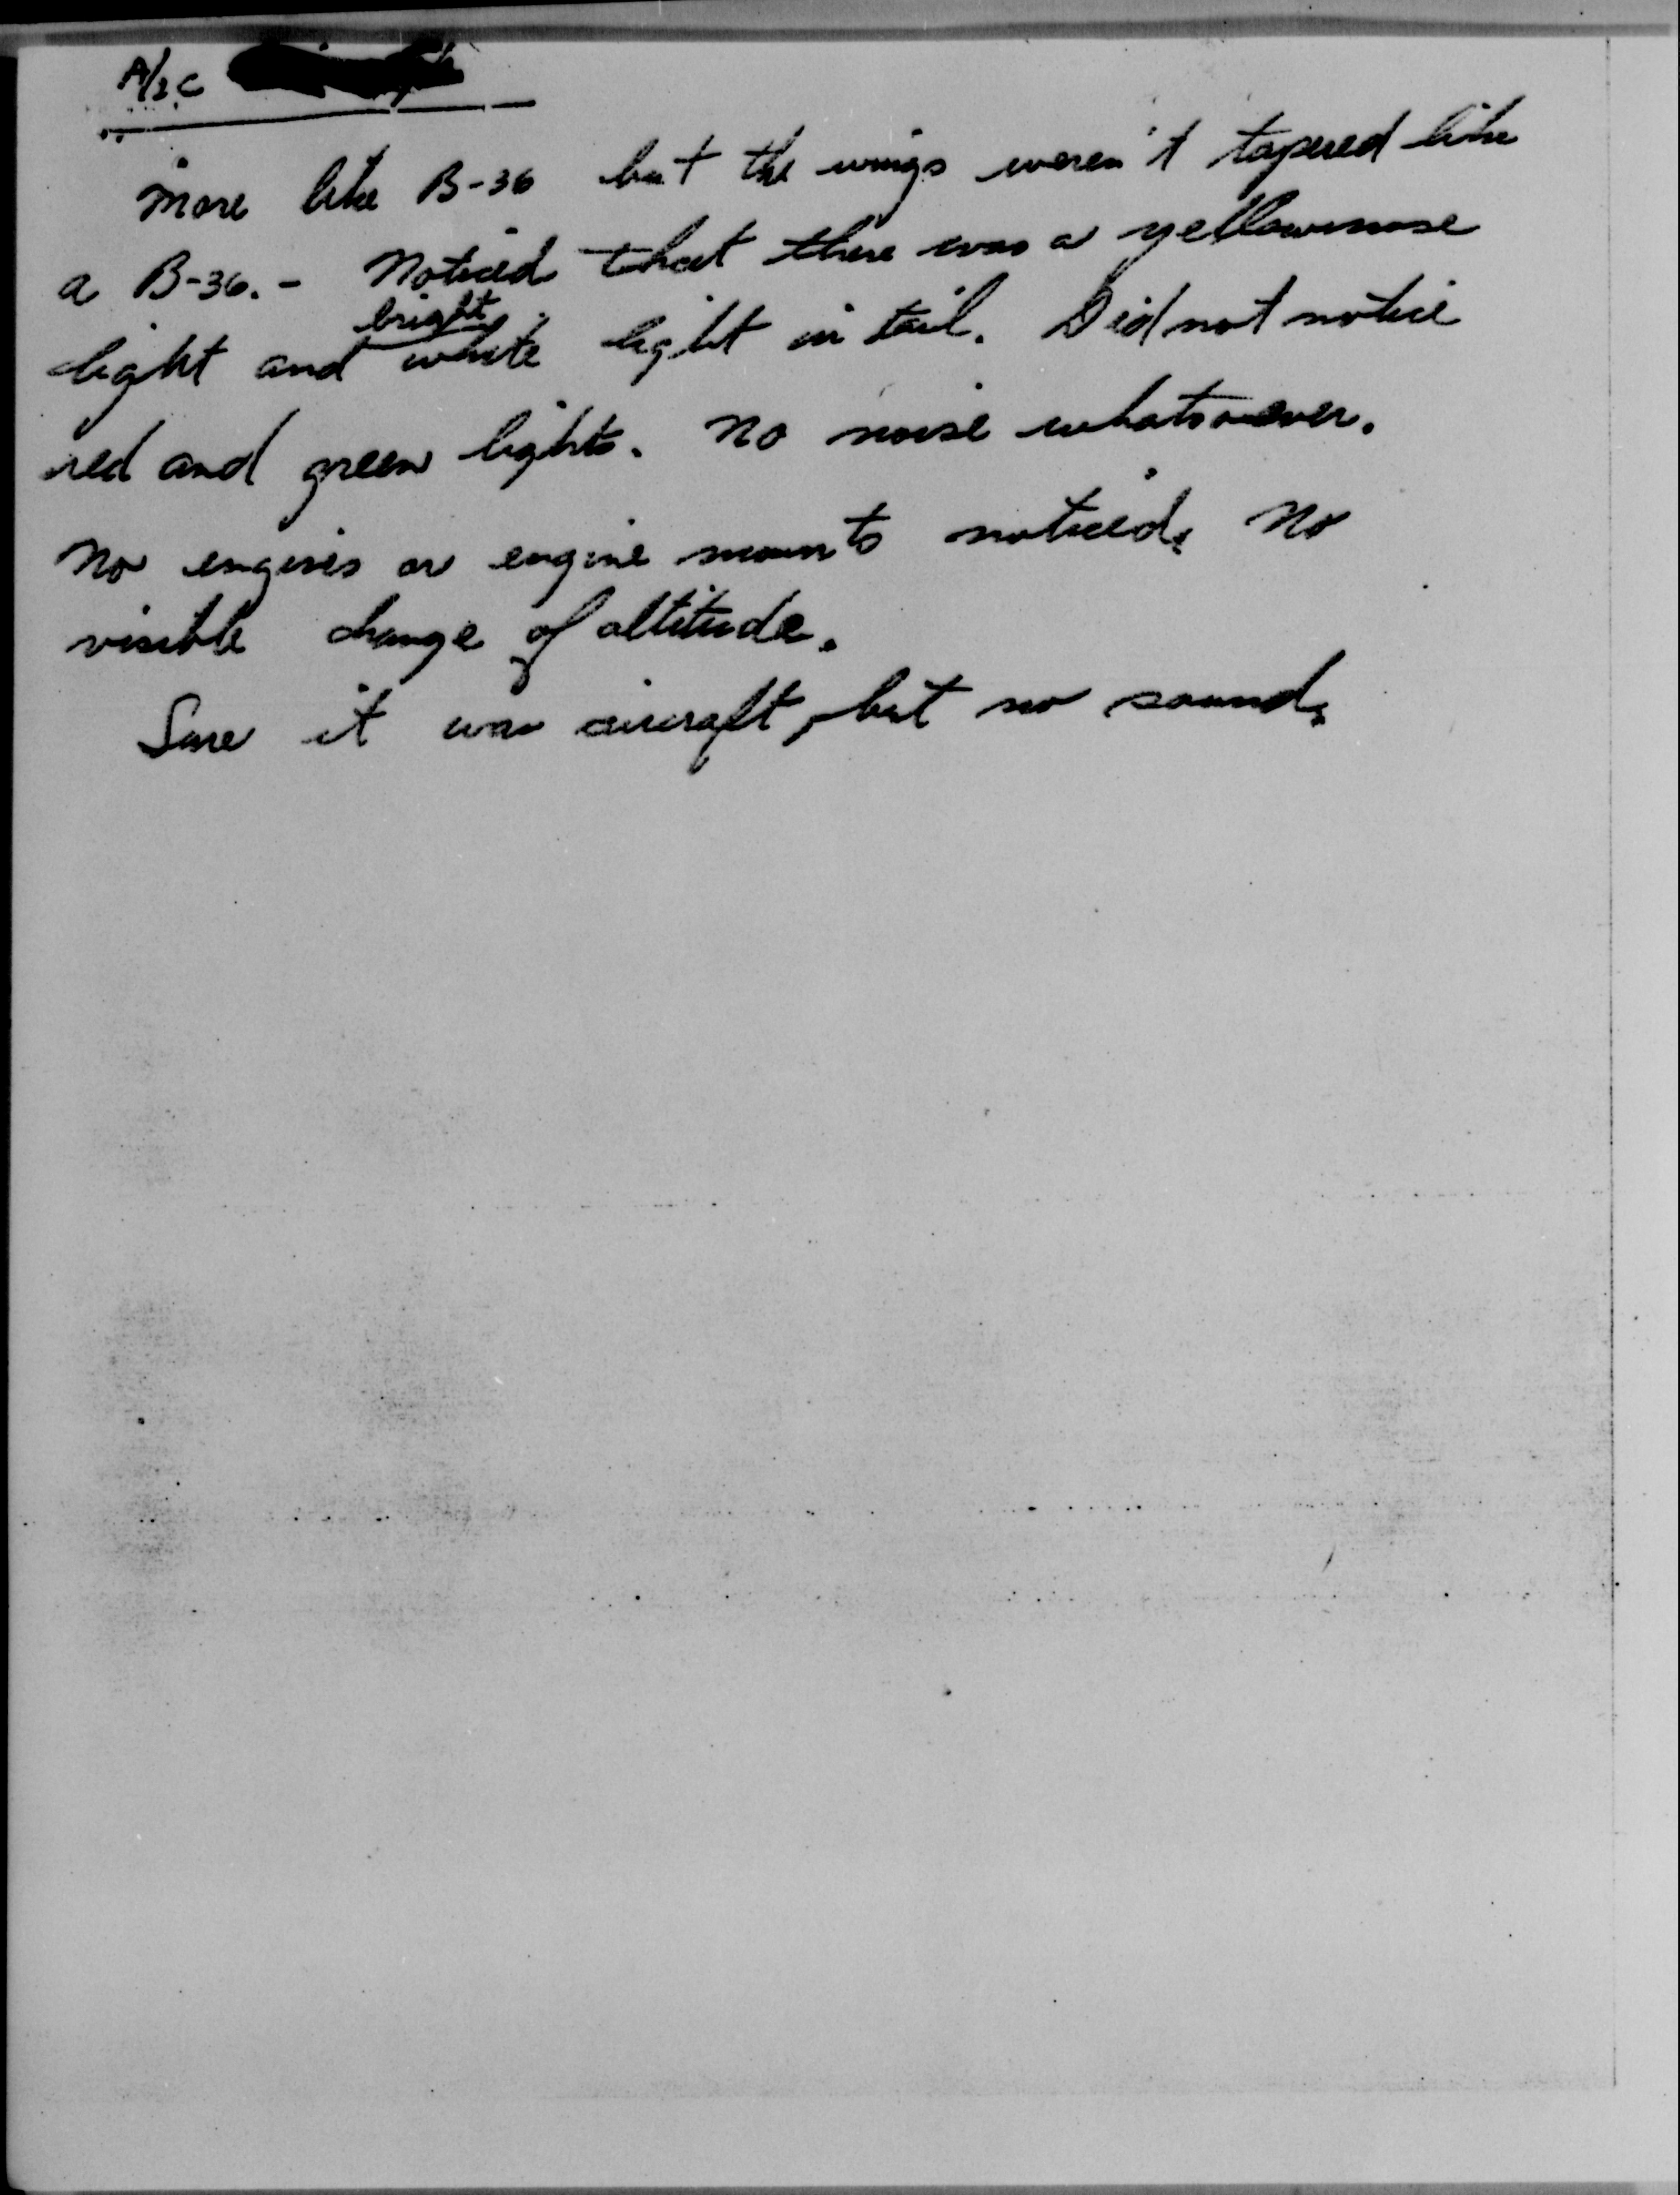 A/2C
More like B-36 but the wings weren't tapered like
a B-36. - Noticed that there was a yellow nose
light and bright white light in tail. Did not notice
red and green lights. No noise whatsoever.
No engines or engine mounts noticed. No
visible change of altitude.
Sure it was aircraft, but no sound.